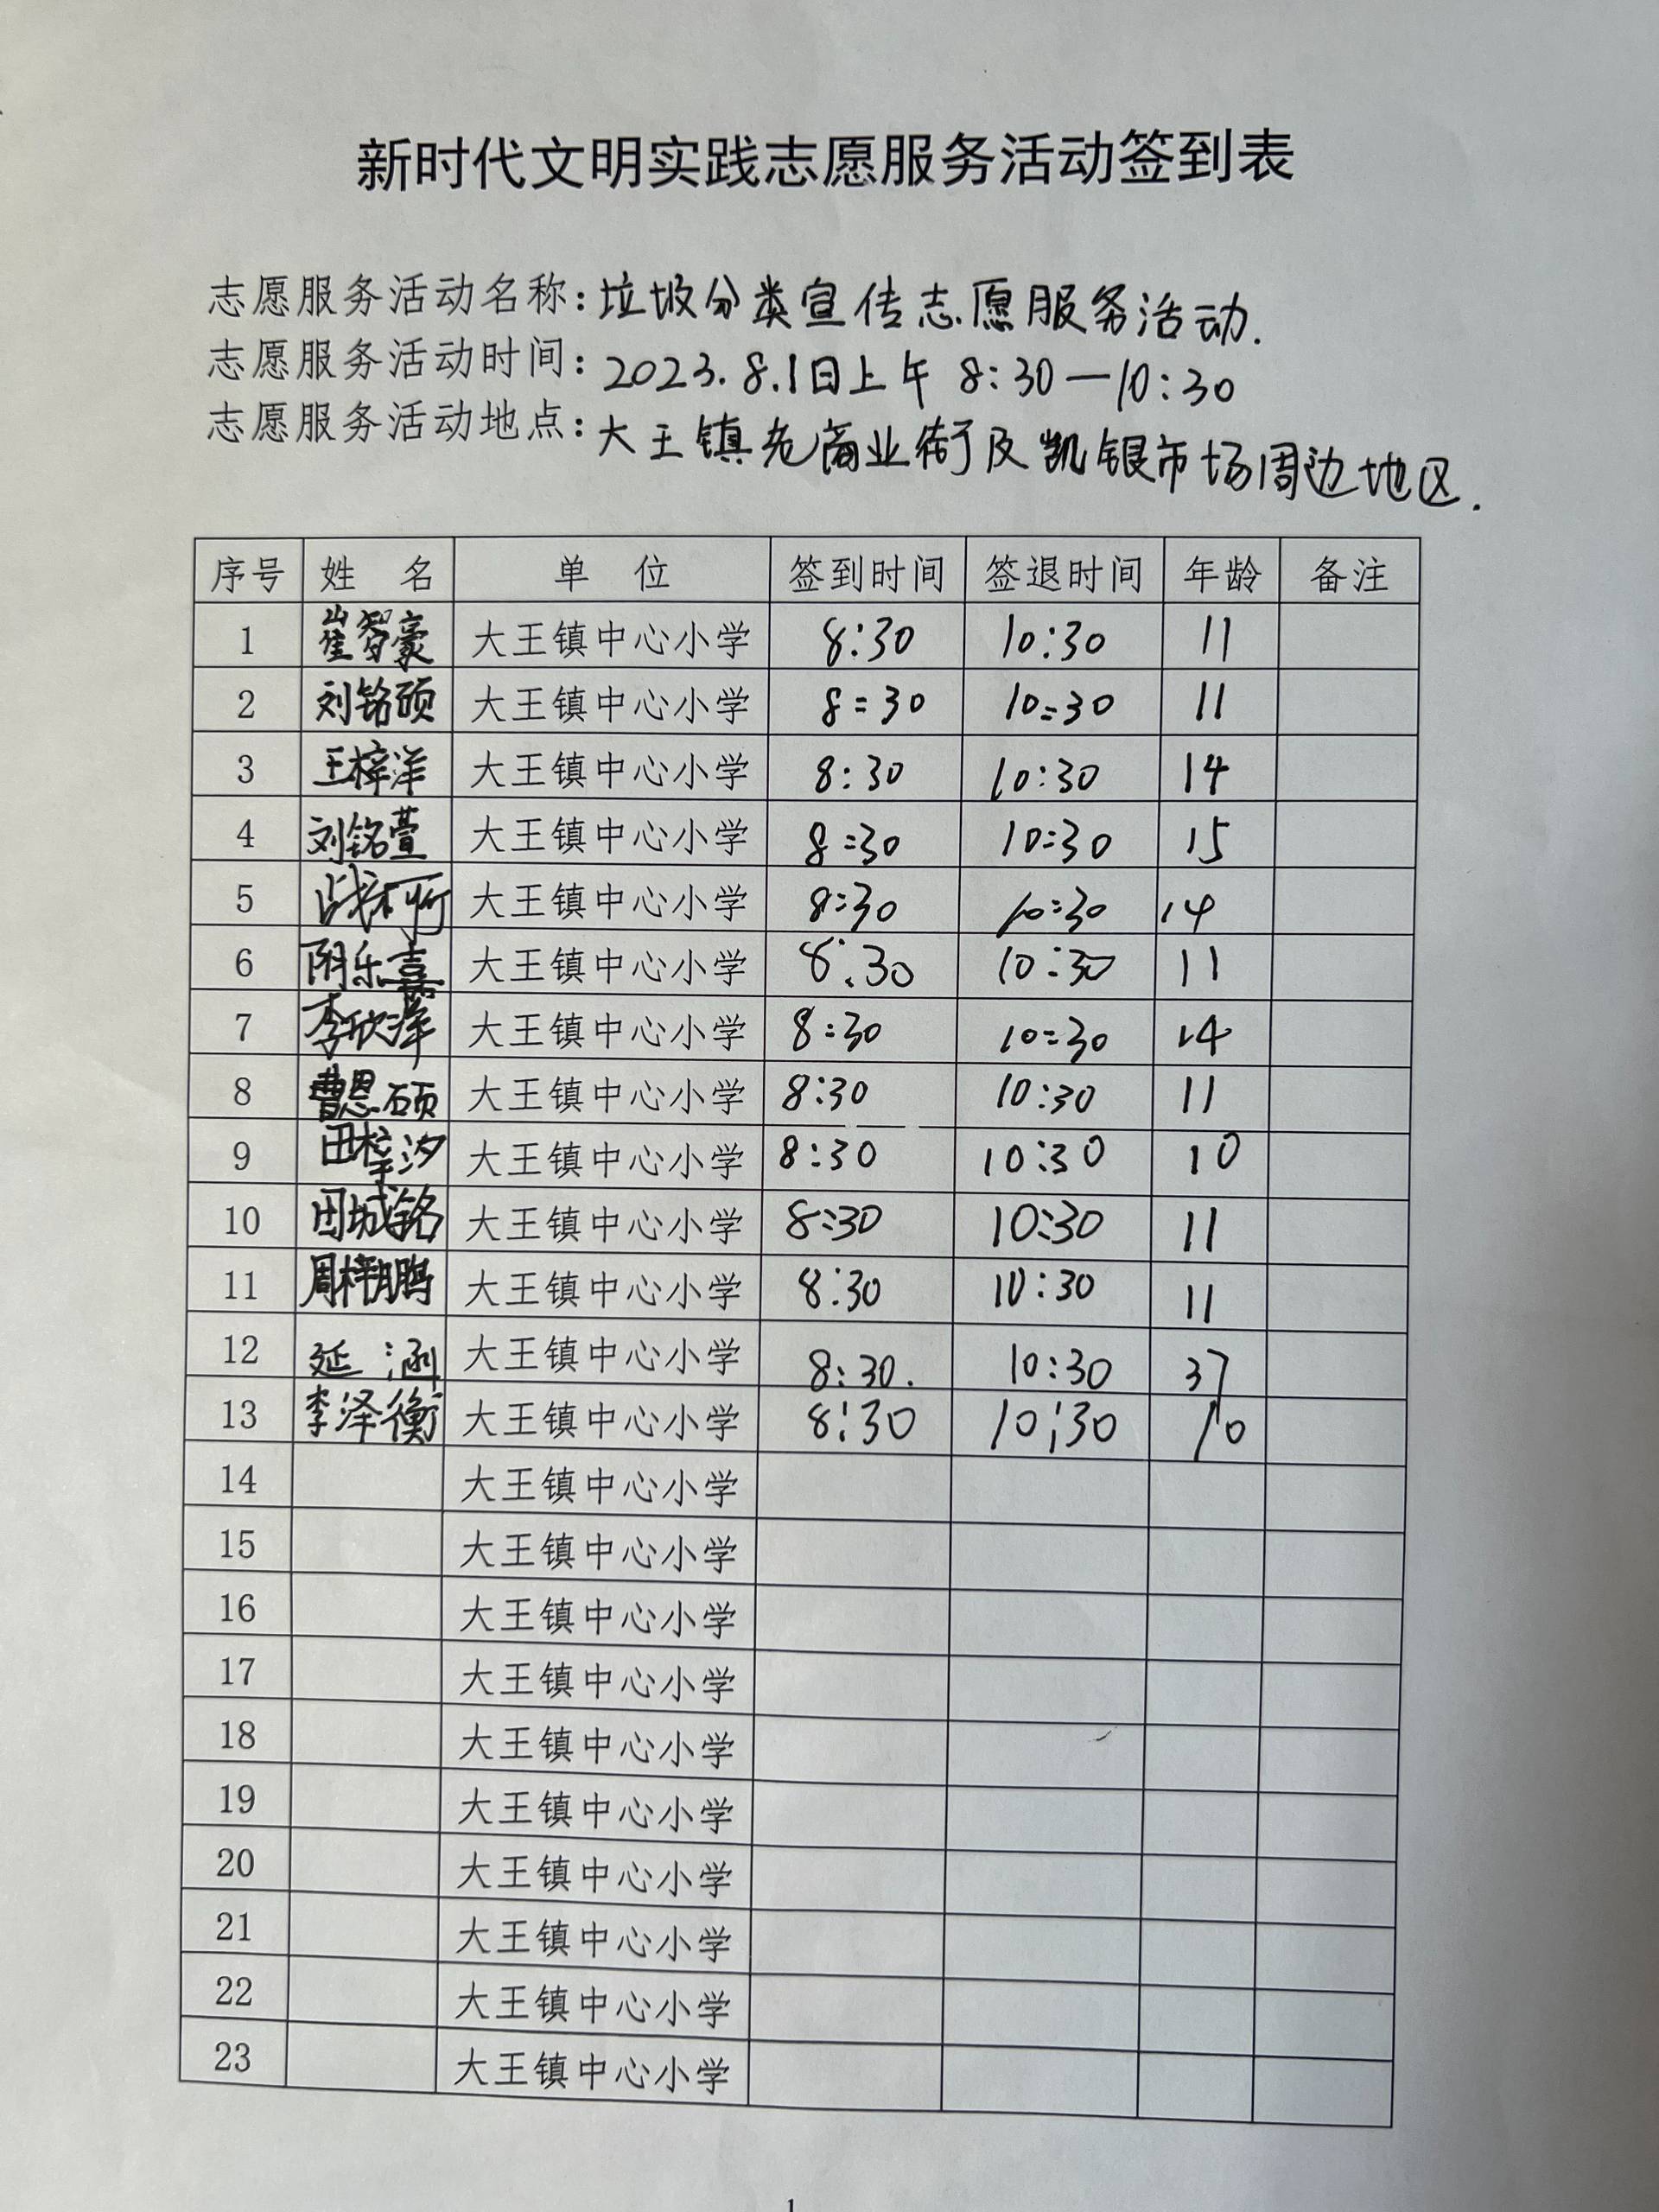 新时代文明实践志愿服务活动签到表
志愿服务活动名称:垃圾分类宣传志愿服务活动.
志愿服务活动时间:2023.8.1日上午 8:30—10:30
志愿服务活动地点:大王镇老商业街及凯银市场周边地区.
序号 姓 名 单 位 签到时间 签退时间 年龄 备注
1 崔智豪 大王镇中心小学 8:30 10:30 11
2 刘铭硕 大王镇中心小学 8:30 10:30 11
3 王梓洋 大王镇中心小学 8:30 10:30 14
4 刘铭萱 大王镇中心小学 8:30 10:30 15
5 大王镇中心小学 8:30 10:30 14
6 大王镇中心小学 8:30 10:30 11
7 李欣泽 大王镇中心小学 8:30 10:30 14
8 曹恩硕 大王镇中心小学 8:30 10:30 11
9 田梓汐 大王镇中心小学 8:30 10:30 10
10 田城铭 大王镇中心小学 8:30 10:30 11
11 周梓鹏 大王镇中心小学 8:30 10:30 11
12 延涵 大王镇中心小学 8:30. 10:30 37
13 李泽衡 大王镇中心小学 8:30 10:30 10
14 大王镇中心小学
15 大王镇中心小学
16 大王镇中心小学
17 大王镇中心小学
18 大王镇中心小学
19 大王镇中心小学
20 大王镇中心小学
21 大王镇中心小学
22 大王镇中心小学
23 大王镇中心小学
1